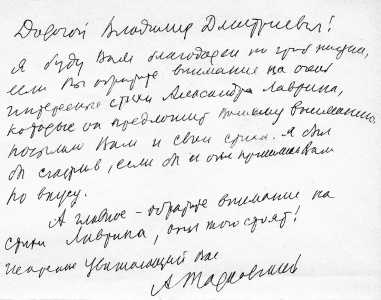 Дорогой Владимир Дмитриевич!
Я буду Вам благодарен по гроб жизни,
если Вы обратите внимание на очень
интересные стихи Александра Лаврина,
которые он предложит Вашему вниманию.
посылаю Вам и свои стихи. Я был
бы счастлив, если бы и они пришлись Вам
по вкусу.
А главное - обратите внимание на
стихи Лаврина, они того стоят!
Искренне Уважающий Вас
А Тарковский